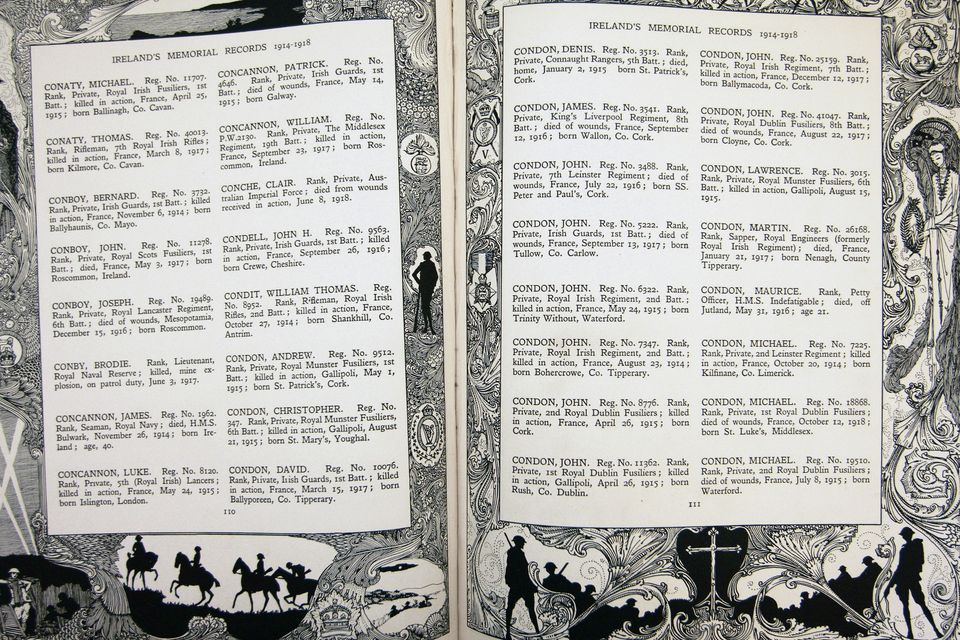 IRELAND'S MEMORIAL RECORDS 1914-1918
CONATY, MICHAEL. Reg. No. 11707.
Rank, Private, Royal Irish Fusiliers, 1st
Batt.; killed in action, France, April 25,
1915; born Ballinagh, Co. Cavan.
CONATY, THOMAS. Reg. No. 40013.
Rank, Rifleman, 7th Royal Irish Rifles;
killed in action, France, March 8, 1917;
born Kilmore, Co. Cavan.
CONBOY, BERNARD. Reg. No. 3732.
Rank, Private, Irish Guards, 1st Batt.; killed
in action, France, November 6, 1914; born
Ballyhaunis, Co. Mayo.
CONBOY, JOHN. Reg. No. 11278.
Rank, Private, Royal Scots Fusiliers, 1st
Batt.; died, France, May 3, 1917; born
Roscommon, Ireland.
CONBOY, JOSEPH. Reg. No. 19489.
Rank, Private, Royal Lancaster Regiment,
6th Batt.; died of wounds, Mesopotamia,
December 15, 1916; born Roscommon.
CONBY, BRODIE. Rank, Lieutenant,
Royal Naval Reserve; killed, mine ex-
plosion, on patrol duty, June 3, 1917.
CONCANNON, JAMES. Reg. No. 1962.
Rank, Seaman, Royal Navy; died, H.M.S.
Bulwark, November 26, 1914; born Ire-
land; age, 40.
CONCANNON, LUKE. Reg. No. 8120.
Rank, Private, 5th (Royal Irish) Lancers;
killed in action, France, May 24, 1915;
born Islington, London.
CONCANNON, PATRICK. Reg. No.
4646. Rank, Private, Irish Guards, 1st
Batt.; died of wounds, France, May 14,
1915; born Galway.
CONCANNON, WILLIAM. Reg. No.
P.W.2130. Rank, Private, The Middlesex
Regiment, 19th Batt.; killed in action,
France, September 23, 1917; born Ros-
common, Ireland.
CONCHE, CLAIR. Rank, Private, Aus-
tralian Imperial Force; died from wounds
received in action, June 8, 1918.
CONDELL, JOHN H. Reg. No. 9563.
Rank, Private, Irish Guards, 1st Batt.; killed
in action, France, September 26, 1916;
born Crewe, Cheshire.
CONDIT, WILLIAM THOMAS. Reg.
No. 8952. Rank, Rifleman, Royal Irish
Rifles, 2nd Batt.; killed in action, France,
October 27, 1914; born Shankhill, Co.
Antrim.
CONDON, ANDREW. Reg. No. 9512.
Rank, Private, Royal Munster Fusiliers, 1st
Batt.; killed in action, Gallipoli, May 1,
1915; born St. Patrick's, Cork.
CONDON, CHRISTOPHER. Reg. No.
347. Rank, Private, Royal Munster Fusiliers,
6th Batt.; killed in action, Gallipoli, August
21, 1915; born St. Mary's, Youghal.
CONDON, DAVID. Reg. No. 10076.
Rank, Private, Irish Guards, 1st Batt.; killed
in action, France, March 15, 1917; born
Ballyporeen, Co. Tipperary.
110
IRELAND'S MEMORIAL RECORDS 1914-1918
CONDON, DENIS. Reg. No. 3513. Rank,
Private, Connaught Rangers, 5th Batt.; died,
home, January 2, 1915 born St. Patrick's,
Cork.
CONDON, JAMES. Reg. No. 3541. Rank,
Private, King's Liverpool Regiment, 8th
Batt.; died of wounds, France, September
12, 1916; born Wallon, Co. Cork.
CONDON, JOHN. Reg. No. 3488. Rank,
Private, 7th Leinster Regiment; died of
wounds, France, July 22, 1916; born SS.
Peter and Paul's, Cork.
CONDON, JOHN. Reg. No. 5222. Rank,
Private, Irish Guards, 1st Batt.; died of
wounds, France, September 13, 1917; born
Tullow, Co. Carlow.
CONDON, JOHN. Reg. No. 6322. Rank,
Private, Royal Irish Regiment, 2nd Batt.;
killed in action, France, May 24, 1915; born
Trinity Without, Waterford.
CONDON, JOHN. Reg. No. 7347. Rank,
Private, Royal Irish Regiment, 2nd Batt.;
killed in action, France, August 23, 1914;
born Bohercrowe, Co. Tipperary.
CONDON, JOHN. Reg. No. 8776. Rank,
Private, 2nd Royal Dublin Fusiliers; killed
in action, France, April 26, 1915; born
Cork.
CONDON, JOHN. Reg. No. 11362. Rank,
Private, 1st Royal Dublin Fusiliers; killed
in action, Gallipoli, April 26, 1915; born
Rush, Co. Dublin.
CONDON, JOHN. Reg. No. 25159. Rank,
Private, Royal Irish Regiment, 7th Batt.;
killed in action, France, December 12, 1917;
born Ballymacoda, Co. Cork.
CONDON, JOHN. Reg. No. 41047. Rank,
Private, Royal Dublin Fusiliers, 8th Batt.;
died of wounds, France, August 22, 1917;
born Cloyne, Co. Cork.
CONDON, LAWRENCE. Reg. No. 3015.
Rank, Private, Royal Munster Fusiliers, 6th
Batt.; killed in action, Gallipoli, August 15,
1915.
CONDON, MARTIN. Reg. No. 26168.
Rank, Sapper, Royal Engineers (formerly
Royal Irish Regiment); died, France,
January 21, 1917; born Nenagh, County
Tipperary.
CONDON, MAURICE. Rank, Petty
Officer, H.M.S. Indefatigable; died, off
Jutland, May 31, 1916; age 21.
CONDON, MICHAEL. Reg. No. 7225.
Rank, Private, 2nd Leinster Regiment; killed
in action, France, October 20, 1914; born
Kilfinane, Co. Limerick.
CONDON, MICHAEL. Reg. No. 18868.
Rank, Private, 1st Royal Dublin Fusiliers;
died of wounds, France, October 12, 1918;
born St. Luke's, Middlesex.
CONDON, MICHAEL. Reg. No. 19510.
Rank, Private, 2nd Royal Dublin Fusiliers;
died of wounds, France, July 8, 1915; born
Waterford.
111